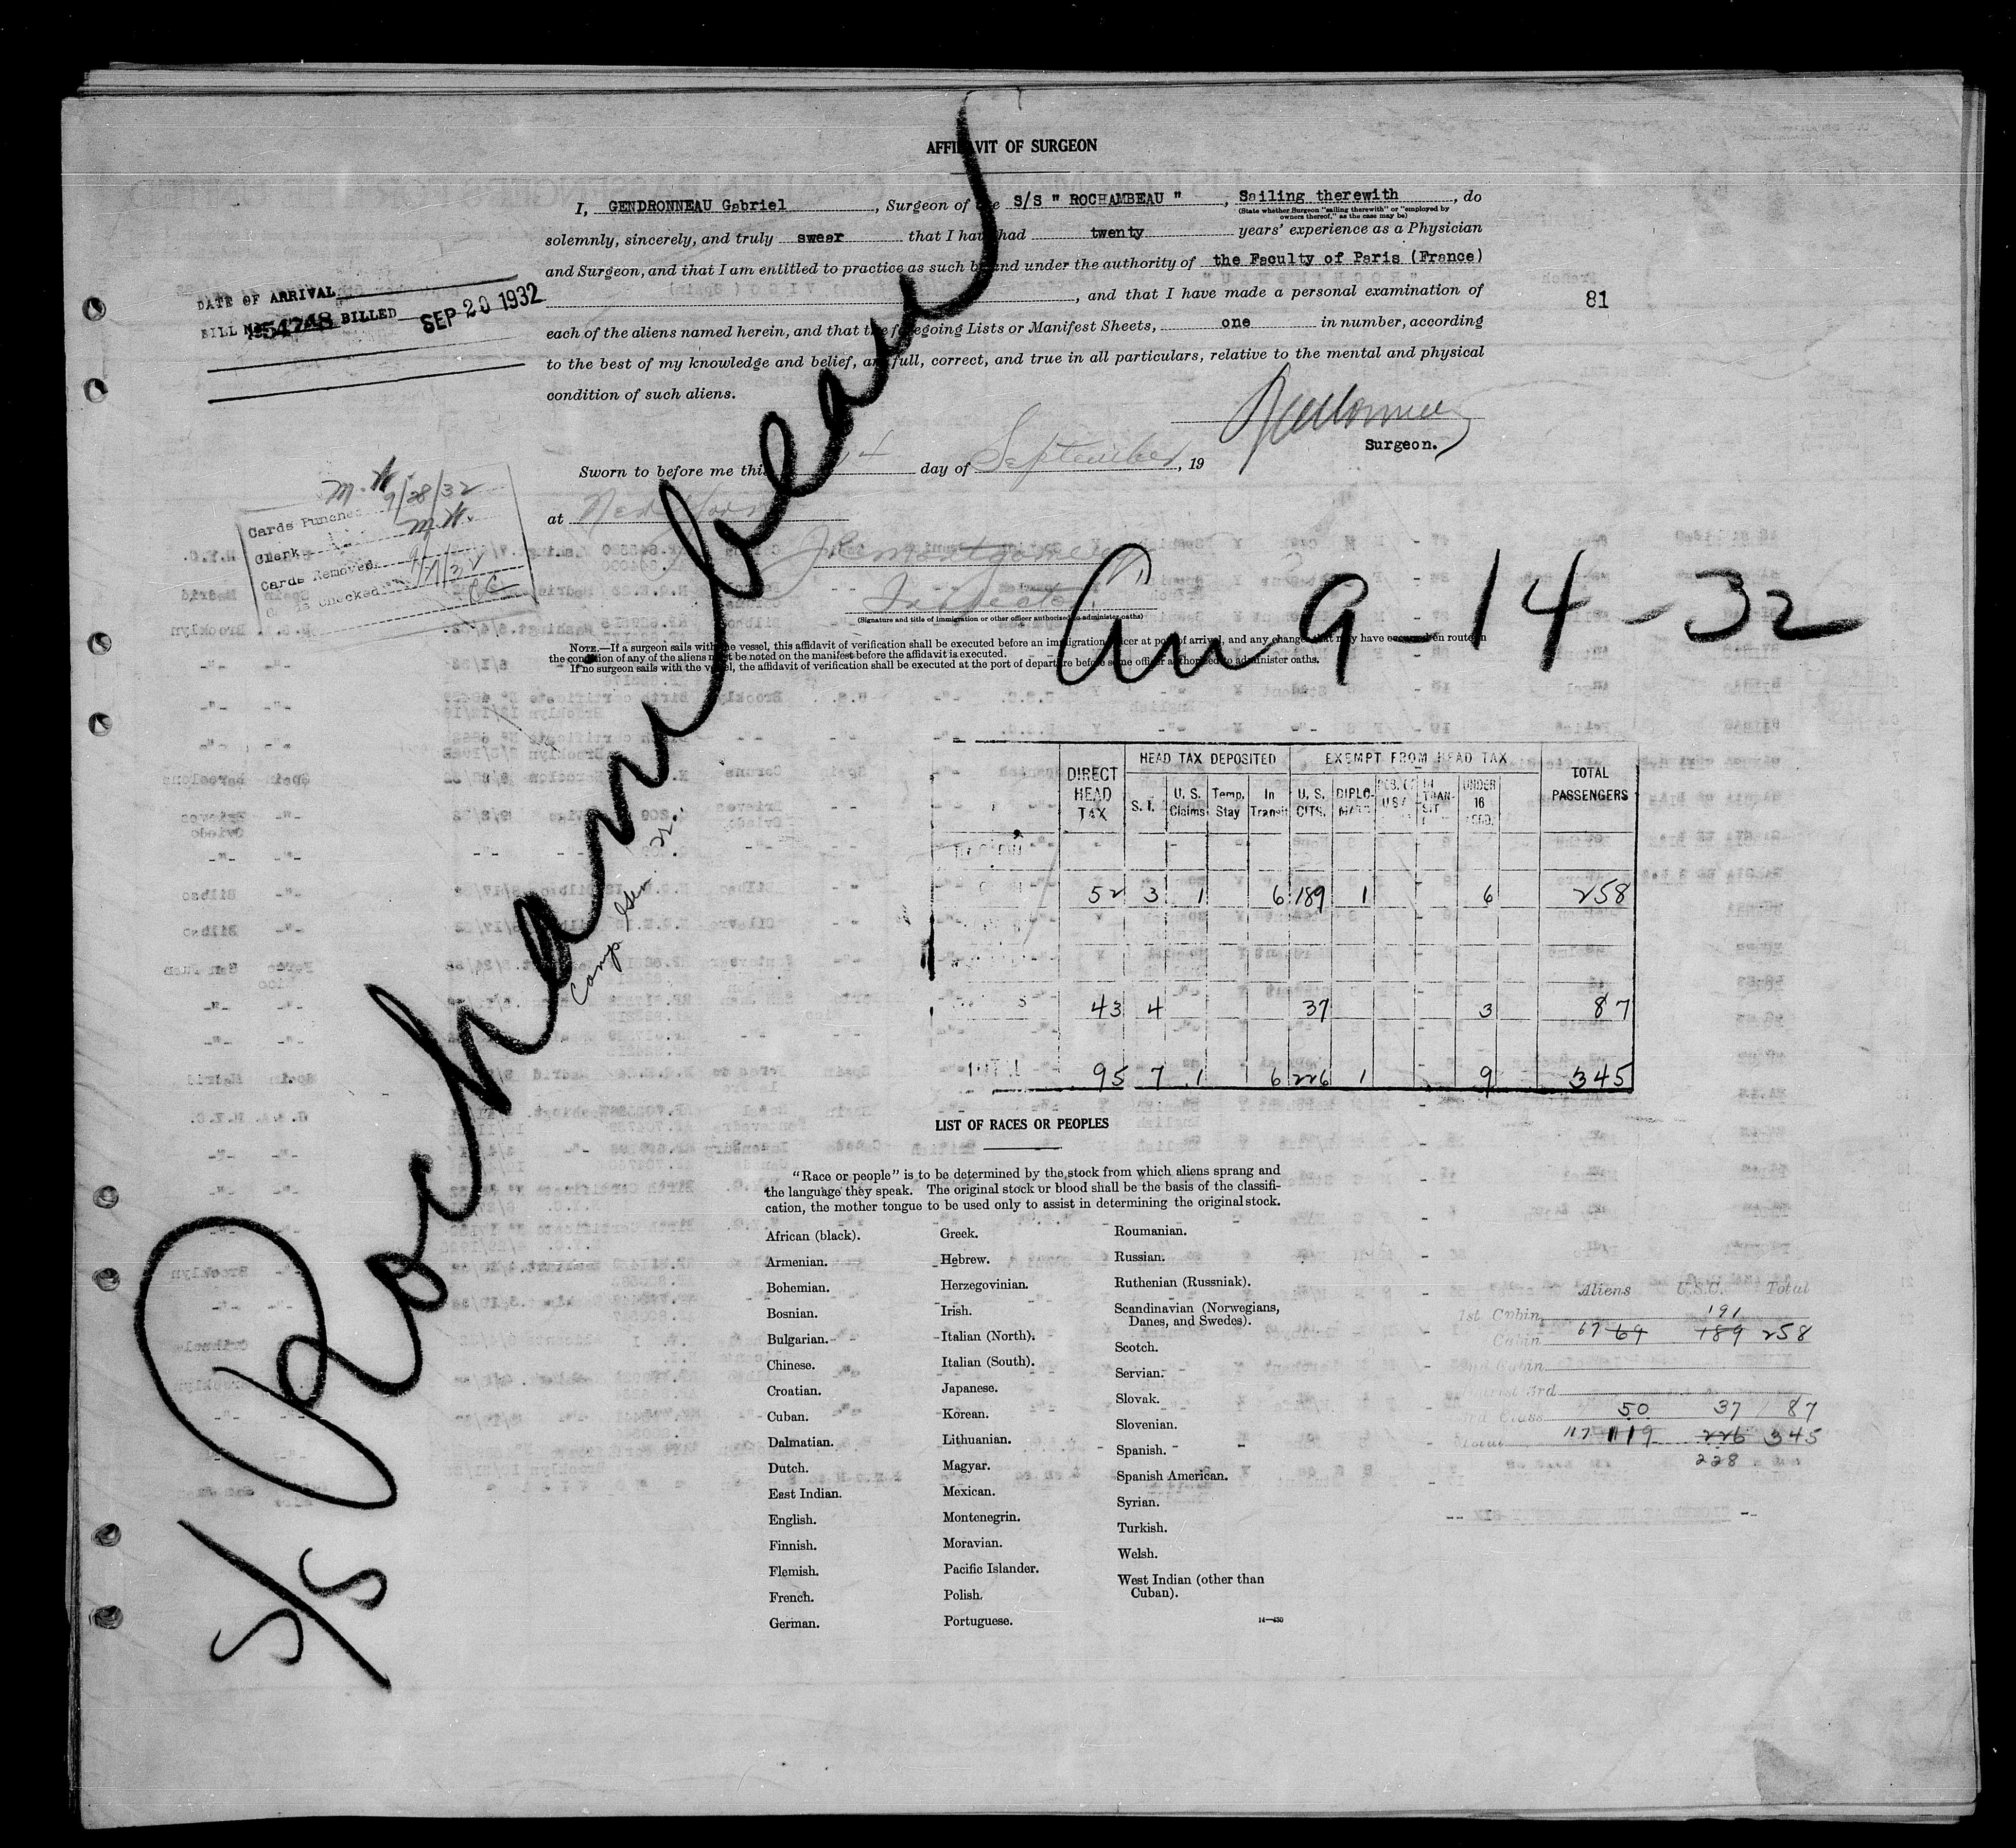 AFFIDAVIT OF SURGEON
I, GENDRONNEAU Gabriel , Surgeon of the S/S " ROCHAMBEAU " , Sailing therewith , do
(State whether Surgeon "sailing therewith" or "employed by
owners thereof," as the case may be)
solemnly, sincerely, and truly swear that I have had twenty years' experience as a Physician
and Surgeon, and that I am entitled to practice as such by and under the authority of the Faculty of Paris (France)
, and that I have made a personal examination of
each of the aliens named herein, and that the foregoing Lists or Manifest Sheets, one in number, according
to the best of my knowledge and belief, are full, correct, and true in all particulars, relative to the mental and physical
condition of such aliens.
Surgeon.
Sworn to before me this 14 day of September , 19
at New York
Montgomery
Inspector
(Signature and title of immigration or other officer authorized to administer oaths)
NOTE.—If a surgeon sails with the vessel, this affidavit of verification shall be executed before an immigration officer at port of arrival, and any changes that may have occurred en route in
the condition of any of the aliens must be noted on the manifest before the affidavit is executed.
If no surgeon sails with the vessel, the affidavit of verification shall be executed at the port of departure before some officer authorized to administer oaths.
DATE OF ARRIVAL
BILL No. 54748 BILLED SEP 20 1932
81
Cards Punched M.H. 9/28/32
Clerk M.H.
Cards Removed
Cards Checked
S/S Rochambeau
Arr 9-14-32
DIRECT HEAD TAX HEAD TAX DEPOSITED EXEMPT FROM HEAD TAX TOTAL PASSENGERS
S. I. U. S. Claims Temp. Stay In Transit U. S. CITS. DIPLO- MATS IN TRAN- SIT UNDER 16
52 3 1 6 189 1 6 258
43 4 37 3 87
TOTAL 95 7 1 6 226 1 9 345
LIST OF RACES OR PEOPLES
"Race or people" is to be determined by the stock from which aliens sprang and
the language they speak. The original stock or blood shall be the basis of the classifi-
cation, the mother tongue to be used only to assist in determining the original stock.
African (black).
Armenian.
Bohemian.
Bosnian.
Bulgarian.
Chinese.
Croatian.
Cuban.
Dalmatian.
Dutch.
East Indian.
English.
Finnish.
Flemish.
French.
German.
Greek.
Hebrew.
Herzegovinian.
Irish.
Italian (North).
Italian (South).
Japanese.
Korean.
Lithuanian.
Magyar.
Mexican.
Montenegrin.
Moravian.
Pacific Islander.
Polish.
Portuguese.
Roumanian.
Russian.
Ruthenian (Russniak).
Scandinavian (Norwegians,
Danes, and Swedes).
Scotch.
Servian.
Slovak.
Slovenian.
Spanish.
Spanish American.
Syrian.
Turkish.
Welsh.
West Indian (other than
Cuban).
14—430
Aliens U.S.C. Total
1st Cabin 191
Cabin 67 69 189 258
2nd Cabin
Tourist 3rd
3rd Class 50 37 87
Total 117 119 226 345
228